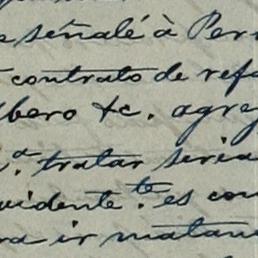 señalé à Per
contrato de refo
bero &c. agreg
.ª tratar seria
vidente.te es con
ra ir matan